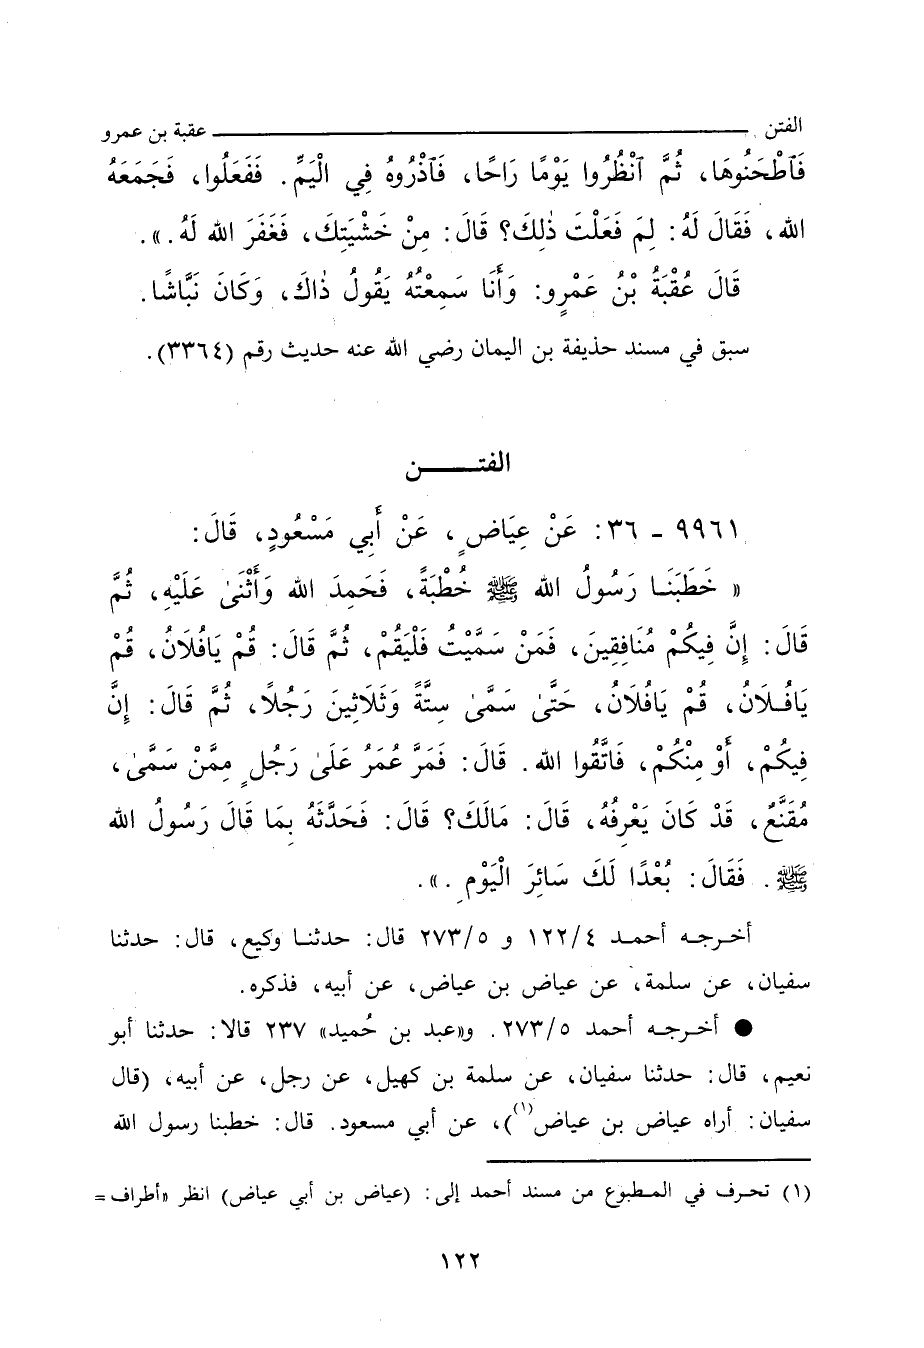 الفتن ــــــــــــــــــــ عقبة بن عمرو
فَٱطْحَنُوهَا، ثُمَّ ٱنْظُرُوا يَوْمًا رَاحًا، فَٱذْرُوهُ فِي الْيَمِّ. فَفَعَلُوا، فَجَمَعَهُ
الله، فَقَالَ لَهُ: لِمَ فَعَلْتَ ذٰلِكَ؟ قَالَ: مِنْ خَشْيَتِكَ، فَغَفَرَ الله لَهُ.».
قَالَ عُقْبَةُ بْنُ عَمْرٍو: وَأَنَا سَمِعْتُهُ يَقُولُ ذَاكَ، وَكَانَ نَبَّاشًا.
سبق في مسند حذيفة بن اليمان رضي الله عنه حديث رقم (٣٣٦٤).
الفتـــــن
٩٩٦١ - ٣٦: عَنْ عِيَاضٍ، عَنْ أَبِي مَسْعُودٍ، قَالَ:
« خَطَبَنَا رَسُولُ الله ﷺ خُطْبَةً، فَحَمِدَ الله وَأَثْنَىٰ عَلَيْهِ، ثُمَّ
قَالَ: إِنَّ فِيكُمْ مُنَافِقِينَ، فَمَنْ سَمَّيْتُ فَلْيَقُمْ، ثُمَّ قَالَ: قُمْ يَافُلَانُ، قُمْ
يَافُلَانُ، قُمْ يَافُلَانُ، حَتَّىٰ سَمَّىٰ سِتَّةً وَثَلَاثِينَ رَجُلًا، ثُمَّ قَالَ: إِنَّ
فِيكُمْ، أَوْ مِنْكُمْ، فَاتَّقُوا الله. قَالَ: فَمَرَّ عُمَرُ عَلَىٰ رَجُلٍ مِمَّنْ سَمَّىٰ،
مُقَنَّعٌ، قَدْ كَانَ يَعْرِفُهُ، قَالَ: مَالَكَ؟ قَالَ: فَحَدَّثَهُ بِمَا قَالَ رَسُولُ الله
ﷺ. فَقَالَ: بُعْدًا لَكَ سَائِرَ الْيَوْمِ.».
أخرجه أحمد ٤/١٢٢ و ٥/٢٧٣ قال: حدثنا وكيع، قال: حدثنا
سفيان، عن سلمة، عن عياض بن عياض، عن أبيه، فذكره.
● أخرجه أحمد ٥/٢٧٣. و«عبد بن حُميد» ٢٣٧ قالا: حدثنا أبو
نعيم، قال: حدثنا سفيان، عن سلمة بن كهيل، عن رجل، عن أبيه، (قال
سفيان: أراه عياض بن عياض(١))، عن أبي مسعود. قال: خطبنا رسول الله
(١) تحرف في المطبوع من مسند أحمد إلى: (عياض بن أبي عياض) انظر «أطراف =
١٢٢